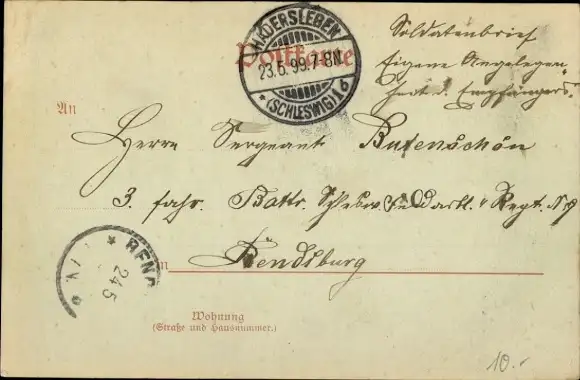 Postkarte
HADERSLEBEN
23.5.99.7-8N.
* (SCHLESWIG) * b
Soldatenbrief
Eigene Angelegen-
heit d. Empfängers.
An
Herrn Sergeant Butenschön
3. fahr. Battr. Regt. No 9
in Rendsburg
REND
24 5
Wohnung
(Straße und Hausnummer.)
10.-